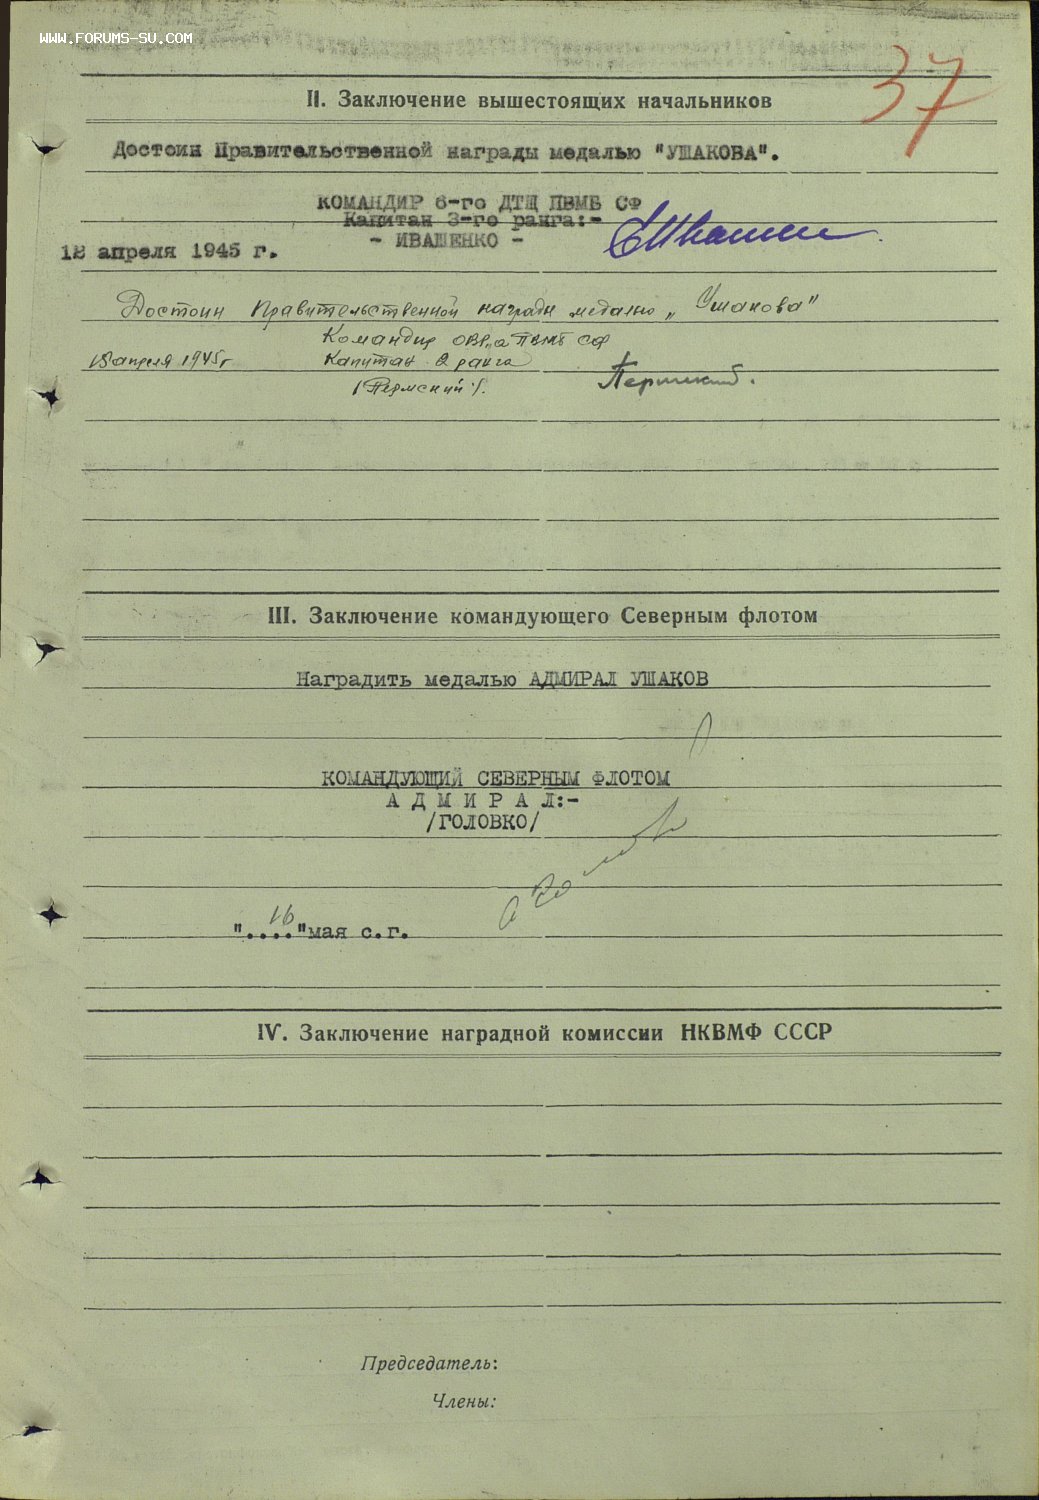 WWW.FORUMS-SU.COM
37
II. Заключение вышестоящих начальников
Достоин Правительственной награды медалью "УШАКОВА".
КОМАНДИР 6-го ДТЩ ПВМБ СФ
Капитан 3-го ранга:-
- ИВАШЕНКО -
18 апреля 1945 г.
Достоин Правительственной награды медалью „Ушакова"
Командир ОВР,а ПВМБ СФ
18 апреля 1945 г
Капитан 2 ранга
(Пермский).
Пермский.
III. Заключение командующего Северным флотом
Наградить медалью АДМИРАЛ УШАКОВ
КОМАНДУЮЩИЙ СЕВЕРНЫМ ФЛОТОМ
А Д М И Р А Л:-
/ГОЛОВКО/
16
"...."мая с.г.
IV. Заключение наградной комиссии НКВМФ СССР
Председатель:
Члены: